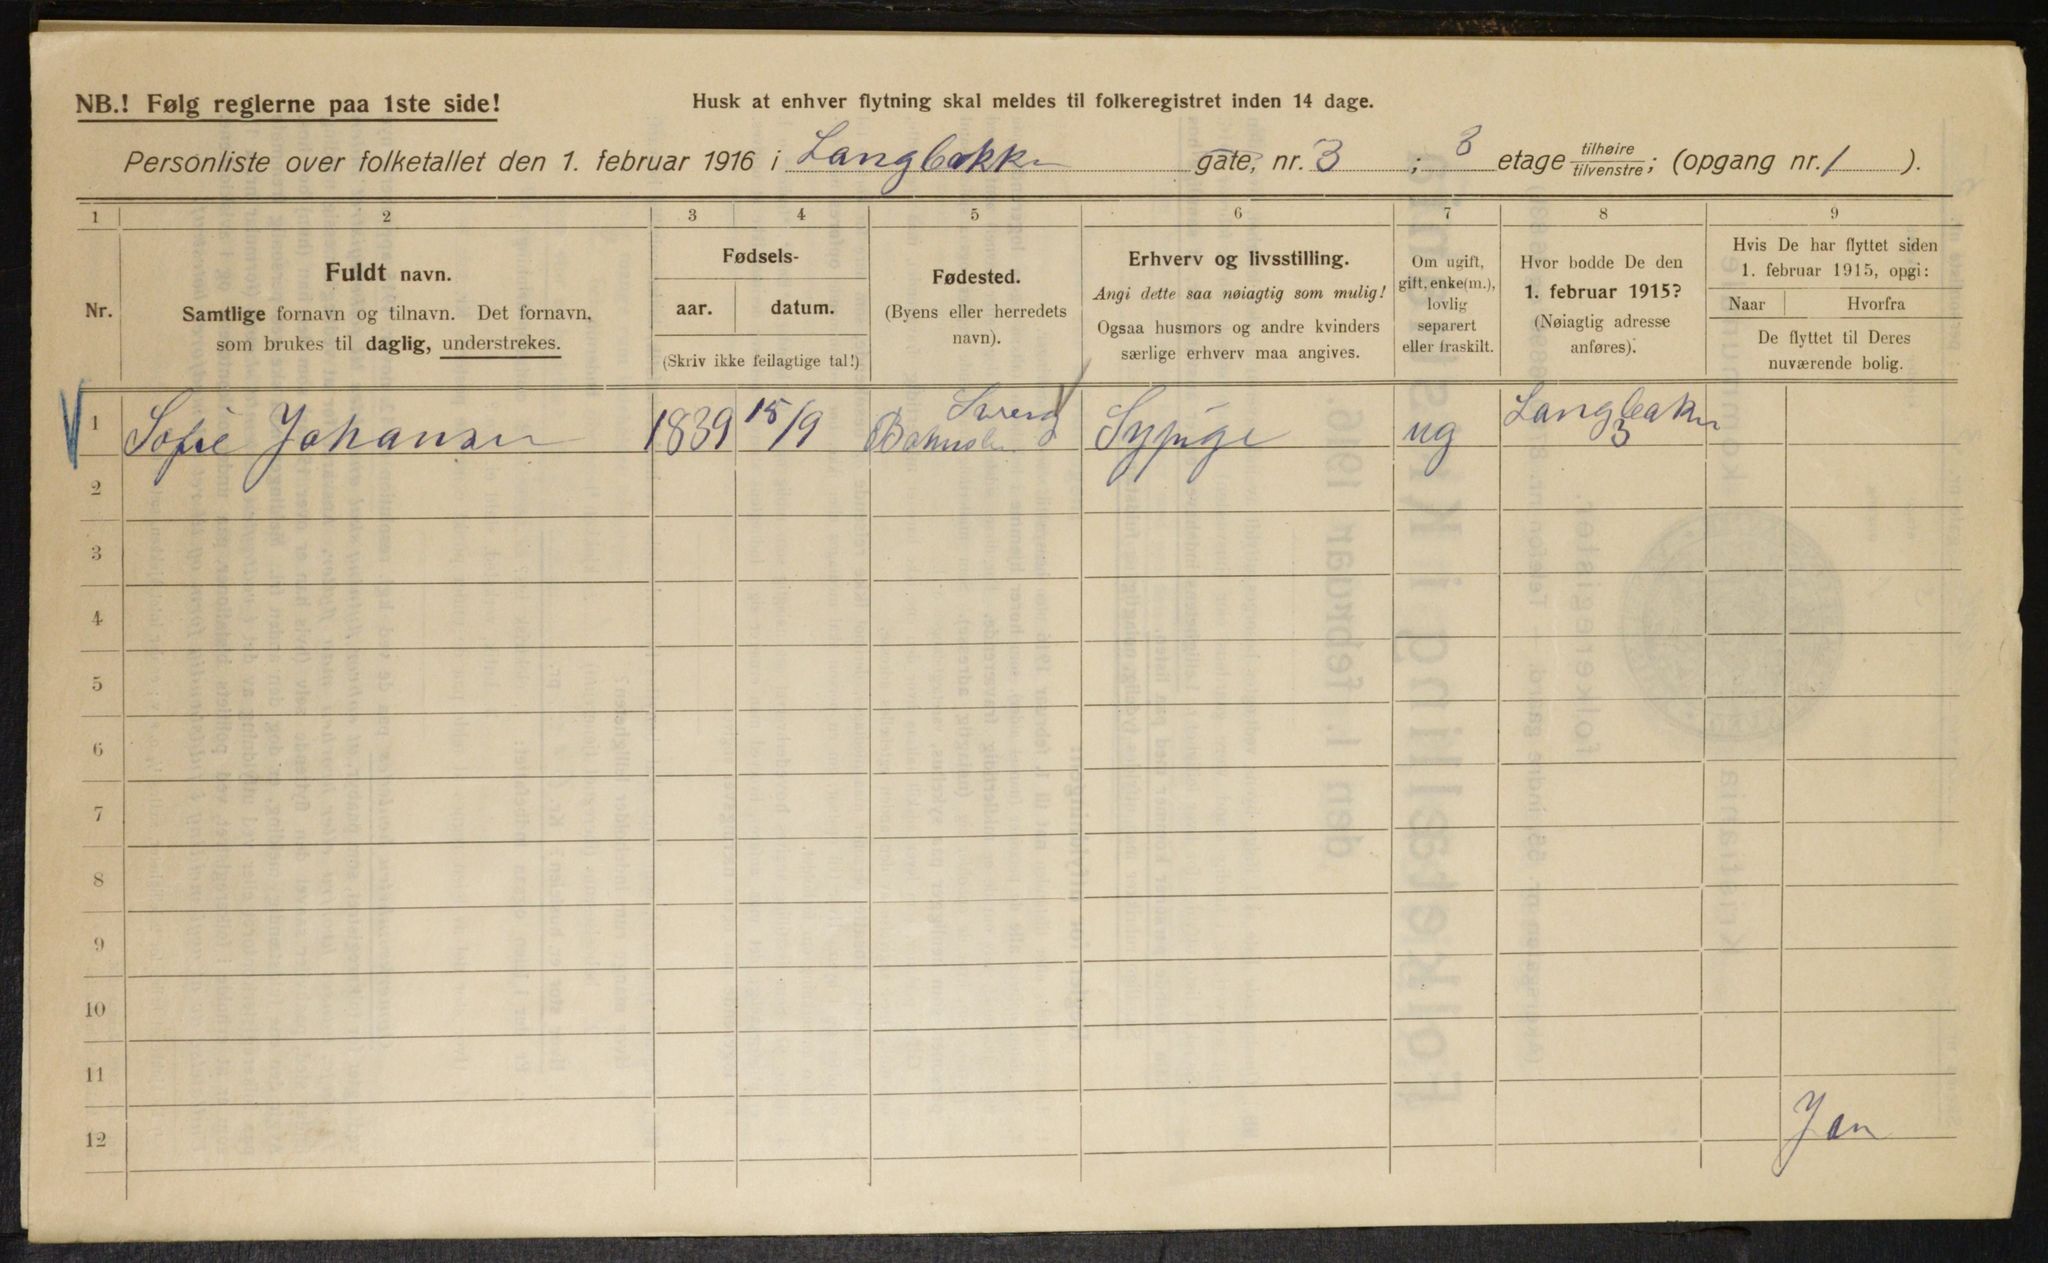 NB.! Følg reglerne paa 1ste side!
Husk at enhver flytning skal meldes til folkeregistret inden 14 dage.
Personliste over folketallet den 1. februar 1916 i Langbakken gate, nr. 3 ; 3 etage tilhøire tilvenstre; (opgang nr. 1 ).
1 2 3 4 5 6 7 8 9
Nr.
Fuldt navn.
Samtlige fornavn og tilnavn. Det fornavn,
som brukes til daglig, understrekes.
Fødsels-
aar. datum.
(Skriv ikke feilagtige tal!)
Fødested.
(Byens eller herredets
navn).
Erhverv og livsstilling.
Angi dette saa nøiagtig som mulig!
Ogsaa husmors og andre kvinders
særlige erhverv maa angives.
Om ugift,
gift, enke(m.),
lovlig
separert
eller fraskilt.
Hvor bodde De den
1. februar 1915?
(Nøiagtig adresse
anføres).
Hvis De har flyttet siden
1. februar 1915, opgi:
Naar Hvorfra
De flyttet til Deres
nuværende bolig.
1 Sofie Johansen 1839 15/9 Sypige ug Langbakken 3
2
3
4
5
6
7
8
9
10
11
12
Jan